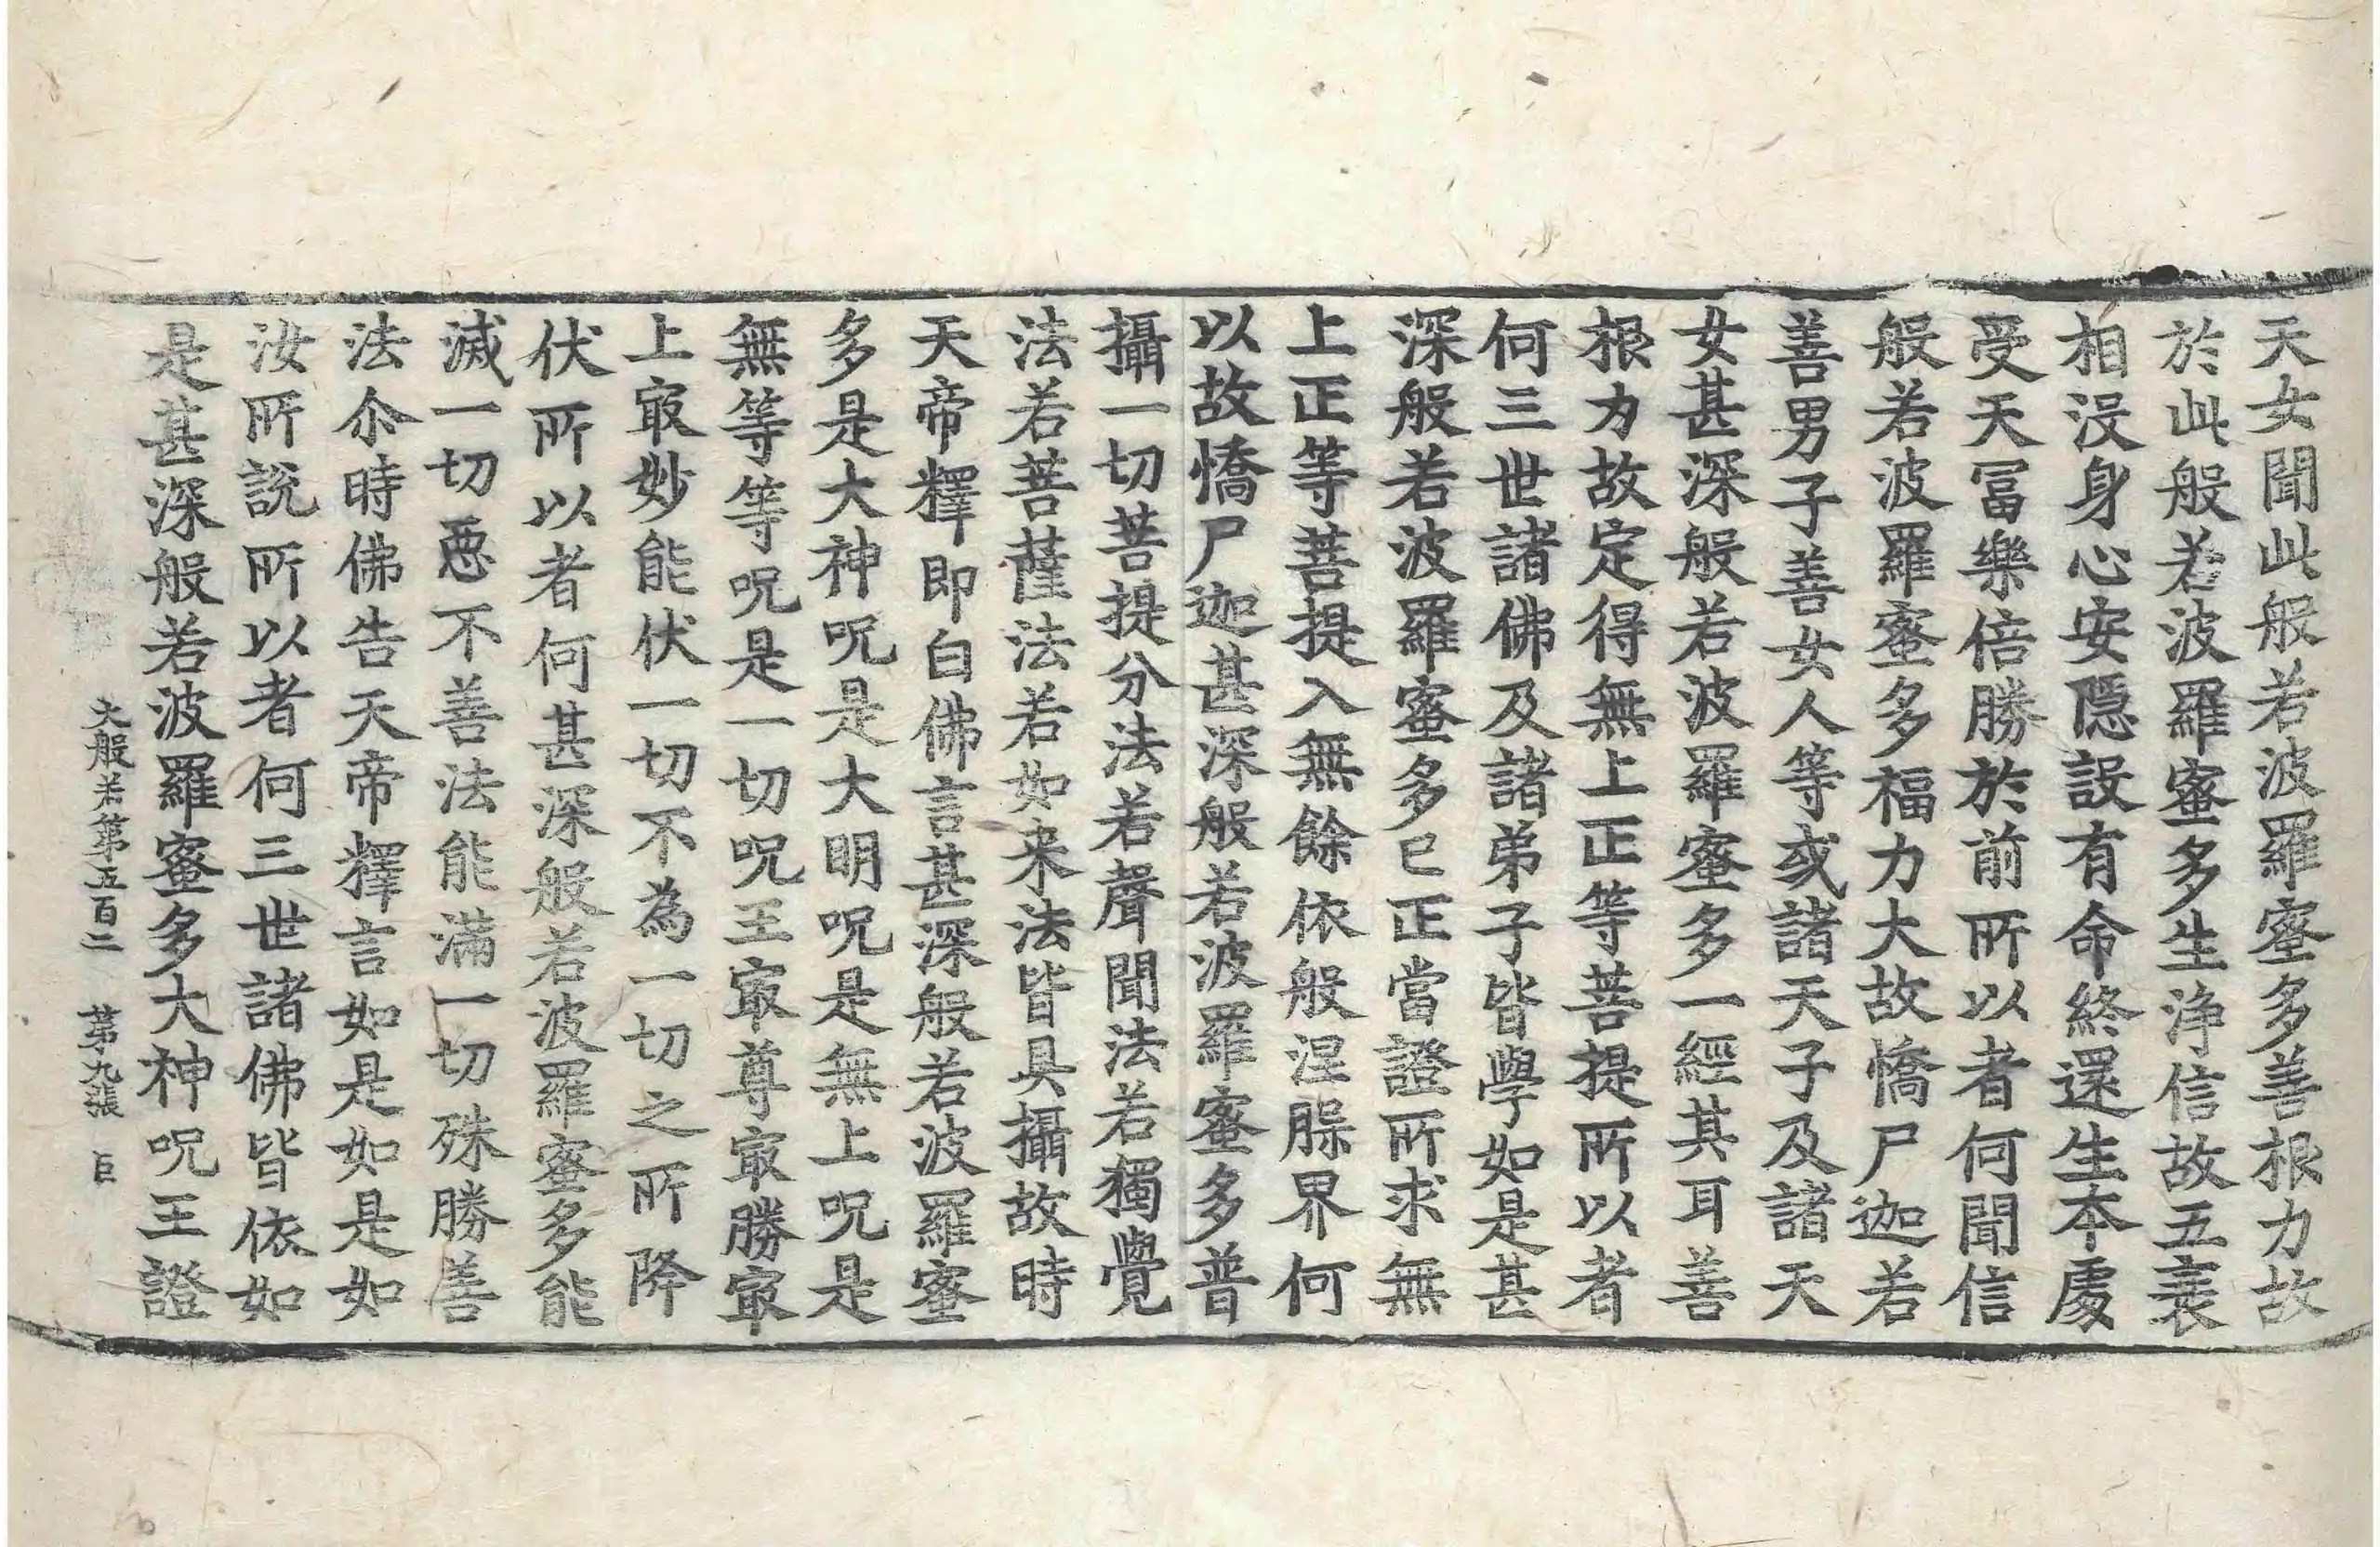 天女聞此般若波羅蜜多善根力故
於此般若波羅蜜多生淨信故五衰
相沒身心安隱設有命終還生本處
受天冨樂倍勝於前所以者何聞信
般若波羅蜜多福力大故憍尸迦若
善男子善女人等或諸天子及諸天
女甚深般若波羅蜜多一經其耳善
根力故定得無上正等菩提所以者
何三世諸佛及諸弟子皆學如是甚
深般若波羅蜜多已正當證所求無
上正等菩提入無餘依般涅槃界何
以故憍尸迦甚深般若波羅蜜多普
攝一切菩提分法若聲聞法若獨覺
法若菩薩法若如来法皆具攝故時
天帝釋即白佛言甚深般若波羅蜜
多是大神呪是大明呪是無上呪是
無等等呪是一切呪王㝡尊㝡勝㝡
上㝡妙能伏一切不為一切之所降
伏所以者何甚深般若波羅蜜多能
滅一切惡不善法能滿一切殊勝善
法尒時佛告天帝釋言如是如是如
汝所說所以者何三世諸佛皆依如
是甚深般若波羅蜜多大神呪王證
大般若第五百二 第九張 巨